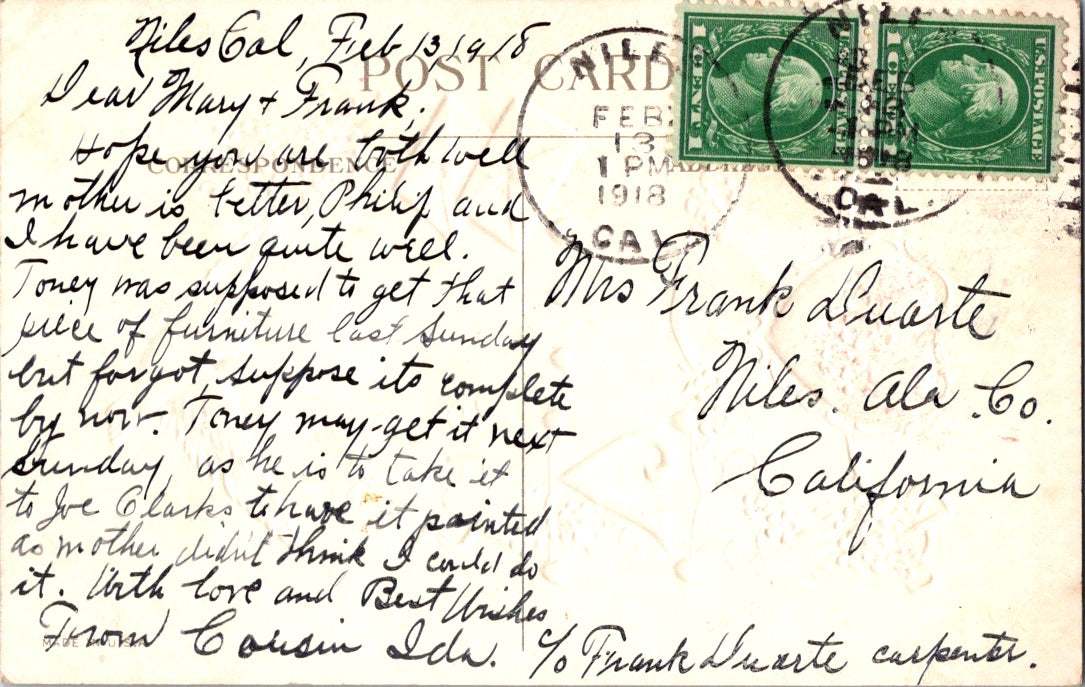 Niles Cal, Feb 13 1918
POST CARD
Dear Mary & Frank.
CORRESPONDENCE
Hope you are both well
mother is better, Philip and
I have been quite well.
Toney was supposed to get that
piece of furniture last Sunday
but forgot, suppose its complete
by now. Toney may get it next
Sunday, as he is to take it
to Joe Clarks to have it painted
as mother didn't think I could do
it. With love and Best Wishes
From Cousin Ida.
MADE IN U.S.A.
NILES
FEB
13
1 PM
1918
CAL.
U.S. POSTAGE
1 1
NILES
FEB
13
1 PM
1918
CAL.
Mrs Frank Duarte
Niles. Ala. Co.
California
c/o Frank Duarte carpenter.